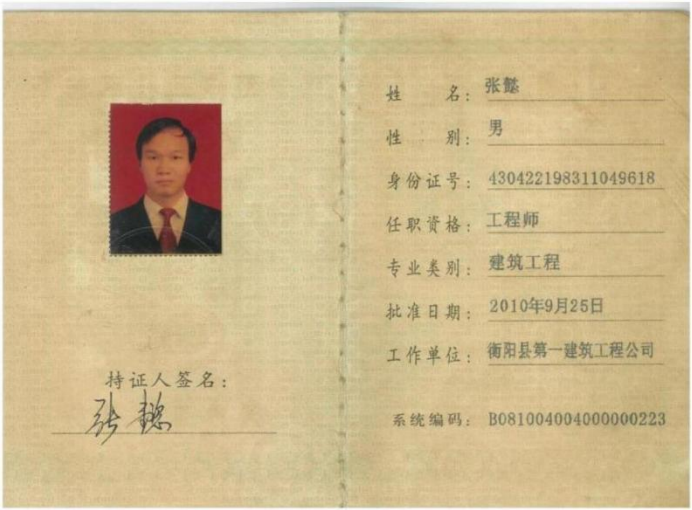 持证人签名：
张懿
姓名：张懿
性别：男
身份证号：430422198311049618
任职资格：工程师
专业类别：建筑工程
批准日期：2010年9月25日
工作单位：衡阳县第一建筑工程公司
系统编码：B081004004000000223